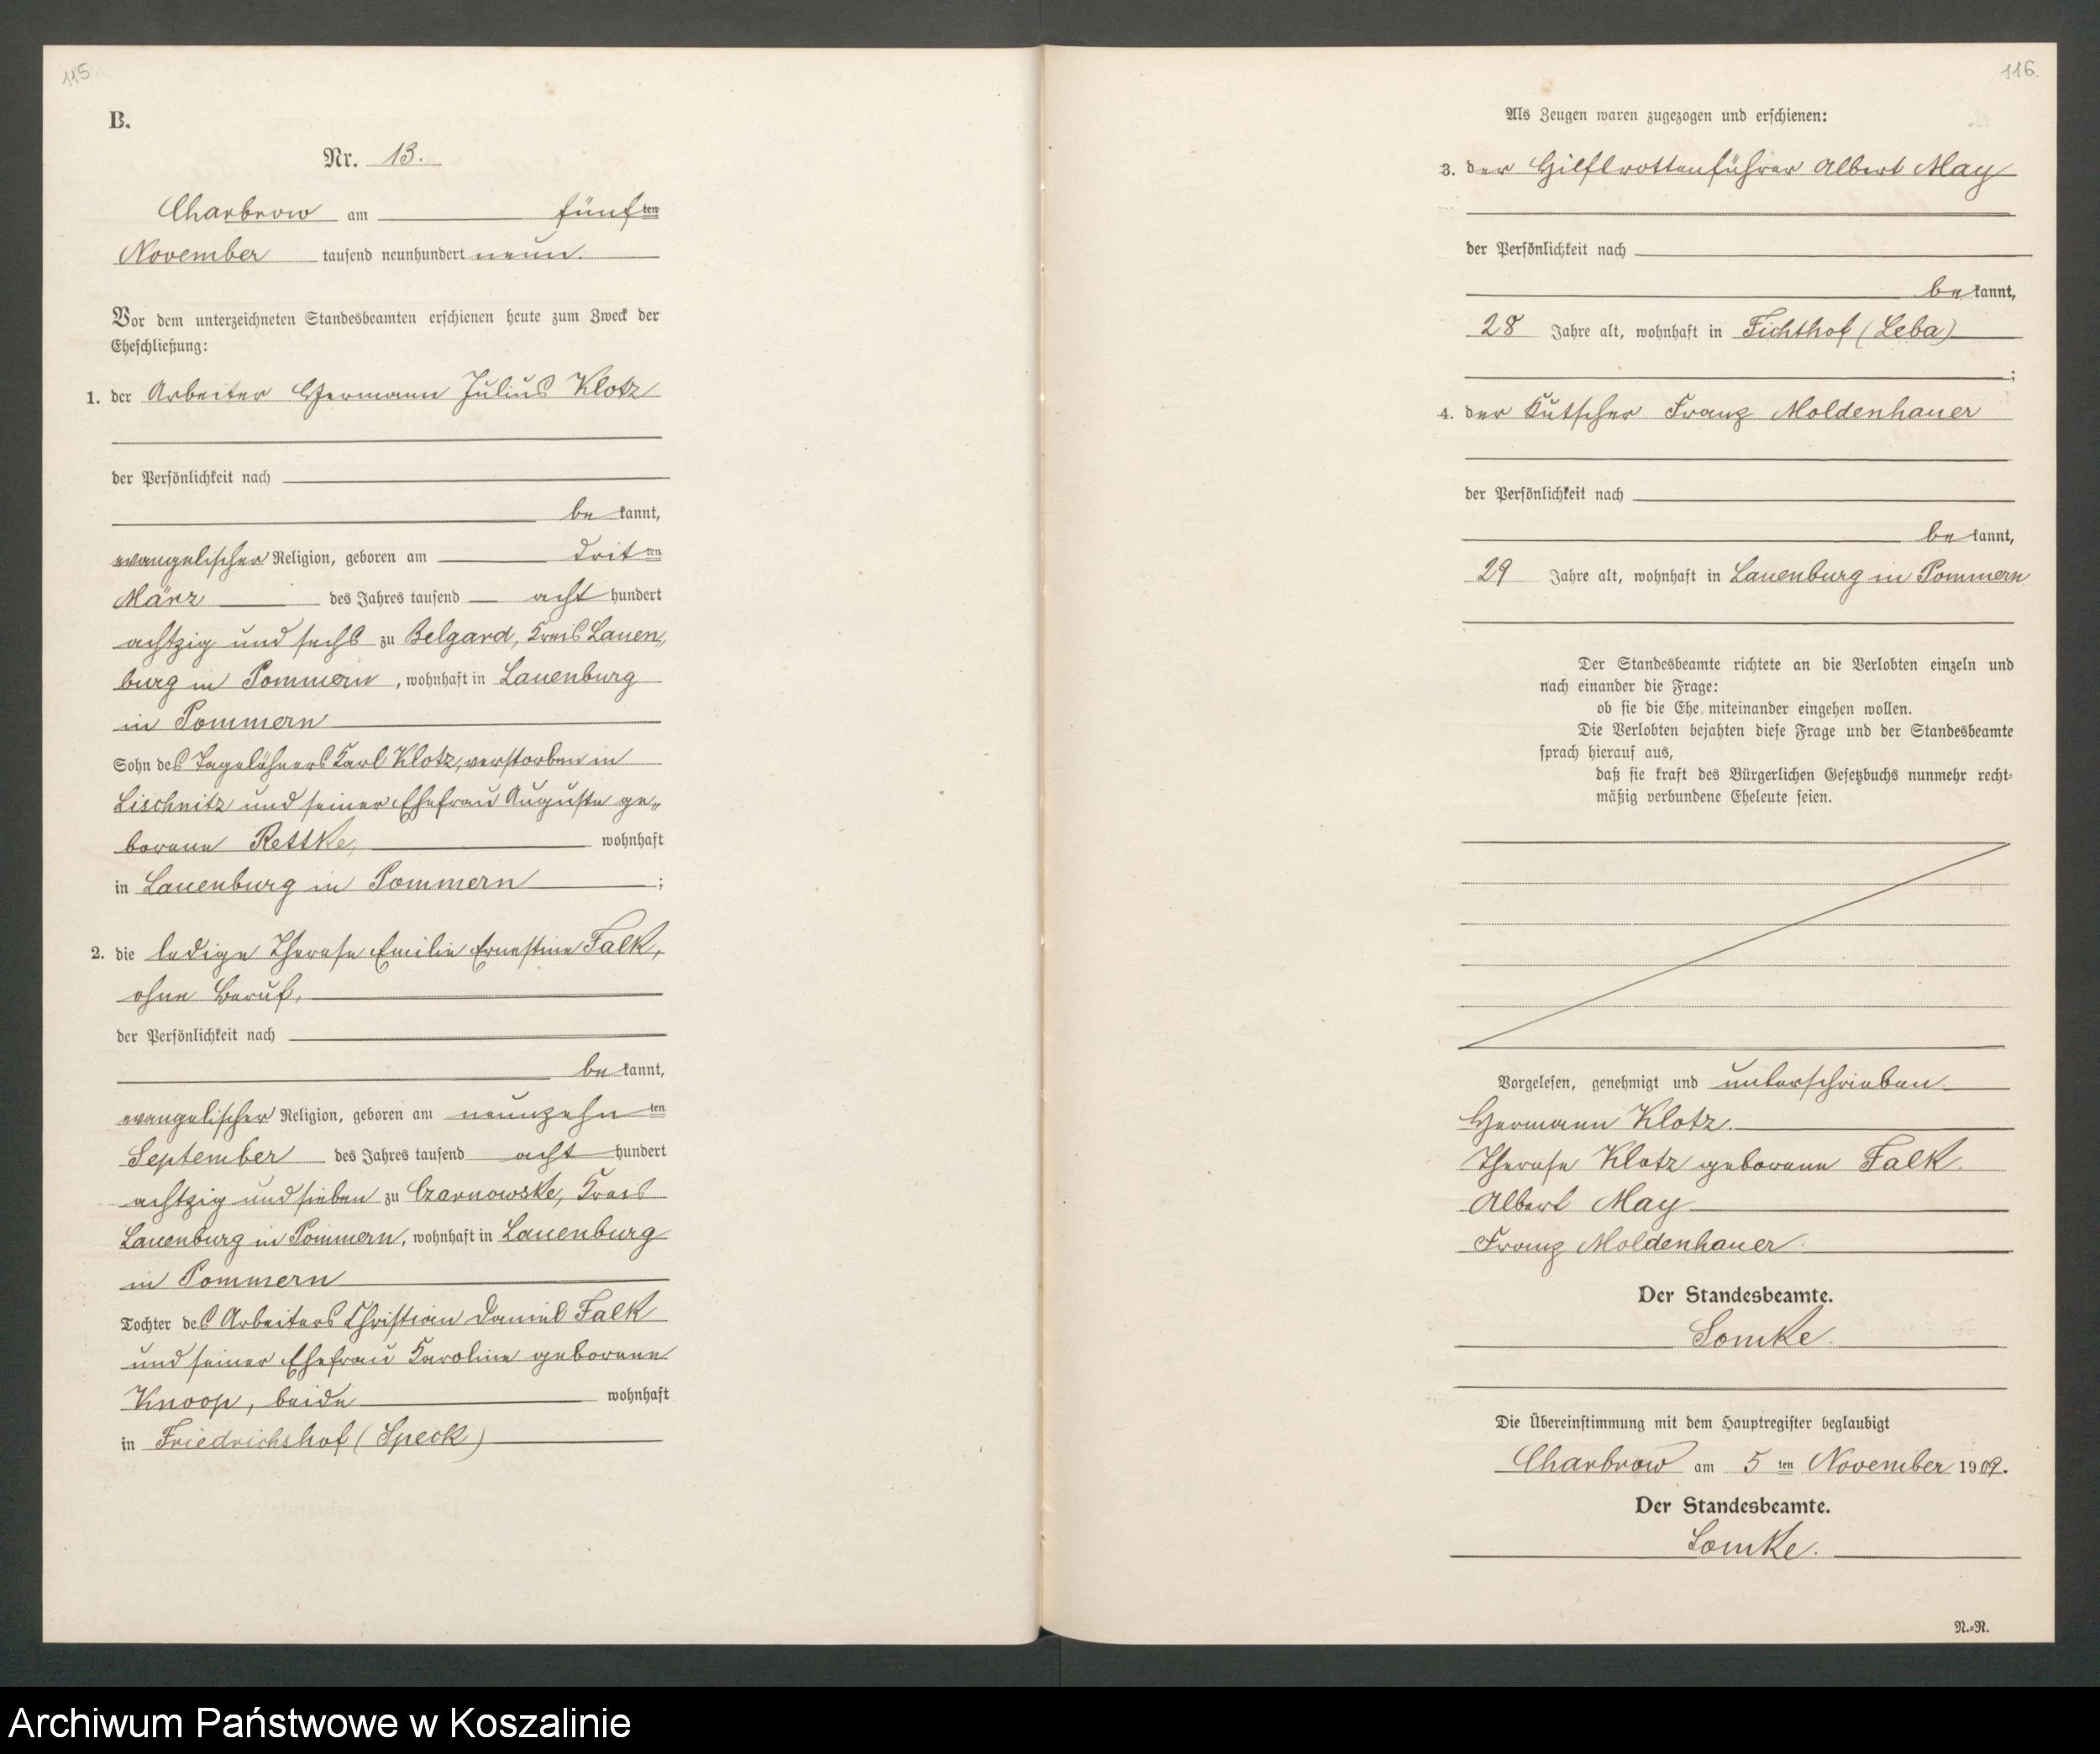 115
B.
Nr. 13.
Charbrow am fünften
November tausend neunhundert neun.
Vor dem unterzeichneten Standesbeamten erschienen heute zum Zweck der
Eheschließung:
1. der Arbeiter Hermann Julius Klotz
der Persönlichkeit nach
bekannt,
evangelischer Religion, geboren am dritten
März des Jahres tausend achthundert
achtzig und sechs zu Belgard, Kreis Lauen-
burg in Pommern, wohnhaft in Lauenburg
in Pommern
Sohn des Tagelöhners Karl Klotz, verstorben in
Lischnitz und seiner Ehefrau Auguste ge-
borene Rettke, wohnhaft
in Lauenburg in Pommern;
2. die ledige Therese Emilie Ernestine Falk,
ohne Beruf,
der Persönlichkeit nach
bekannt,
evangelischer Religion, geboren am neunzehnten
September des Jahres tausend achthundert
achtzig und sieben zu Czarnowske, Kreis
Lauenburg in Pommern, wohnhaft in Lauenburg
in Pommern
Tochter des Arbeiters Christian Daniel Falk
und seiner Ehefrau Karoline geborene
Knoop, beide wohnhaft
in Friedrichshof (Speck)
116.
Als Zeugen waren zugezogen und erschienen:
3. der Hilfsrottenführer Albert May
der Persönlichkeit nach
bekannt,
28 Jahre alt, wohnhaft in Fichthof (Leba)
;
4. der Kutscher Franz Moldenhauer
der Persönlichkeit nach
bekannt,
29 Jahre alt, wohnhaft in Lauenburg in Pommern
Der Standesbeamte richtete an die Verlobten einzeln und
nach einander die Frage:
ob sie die Ehe miteinander eingehen wollen.
Die Verlobten bejahten diese Frage und der Standesbeamte
sprach hierauf aus,
daß sie kraft des Bürgerlichen Gesetzbuchs nunmehr recht-
mäßig verbundene Eheleute seien.
Vorgelesen, genehmigt und unterschrieben
Hermann Klotz.
Therese Klotz geborene Falk.
Albert May
Franz Moldenhauer.
Der Standesbeamte.
Lomke.
Die Übereinstimmung mit dem Hauptregister beglaubigt
Charbrow am 5ten November 1909.
Der Standesbeamte.
Lomke.
N.-R.
Archiwum Państwowe w Koszalinie